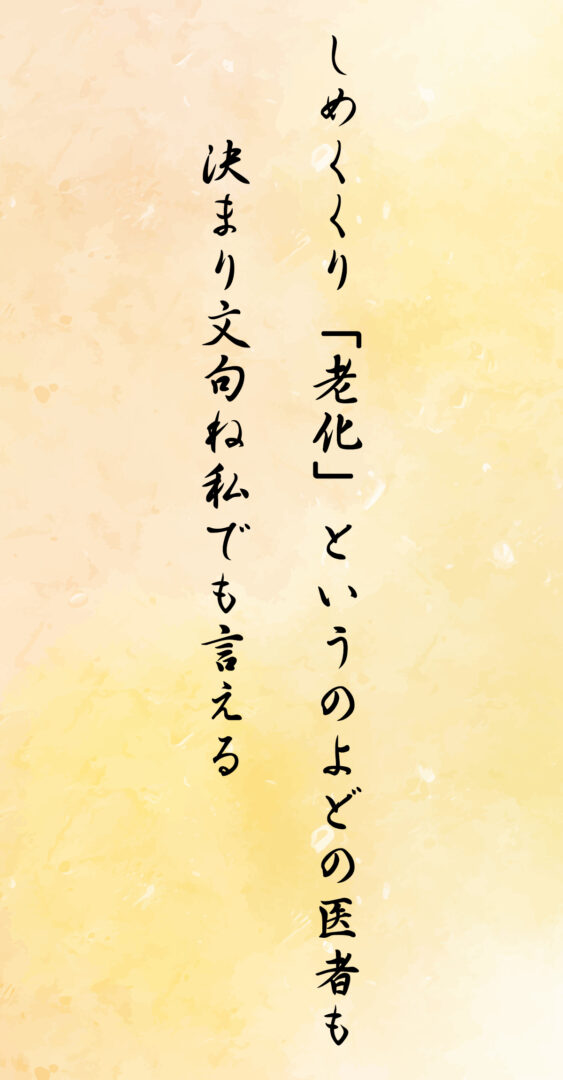 しめくくり「老化」というのよどの医者も
決まり文句ね私でも言える